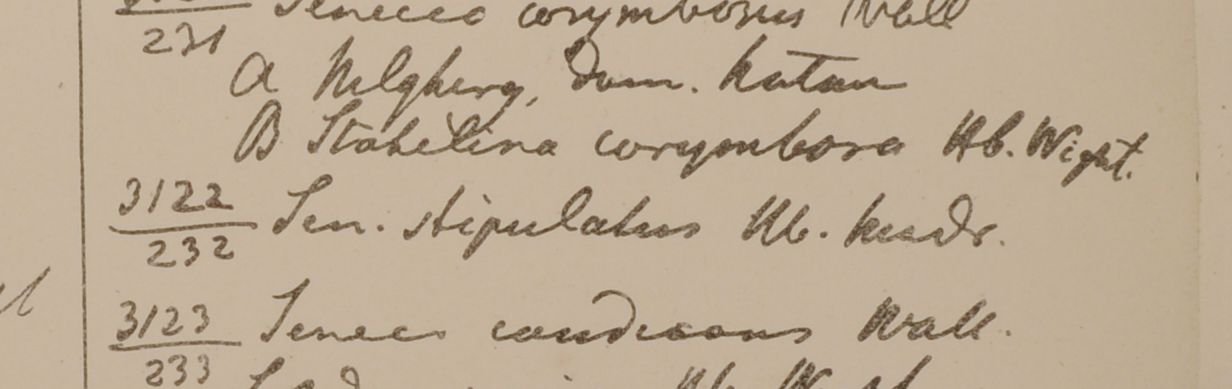 231 Senecio corymbosus Wall
A Nelghery, Dom. Katan
B Stahelina corymbosa Hb. Wight.
3122 Sen. stipulatus Hb. Madr.
232
3123 Senecio candicans Wall.
233